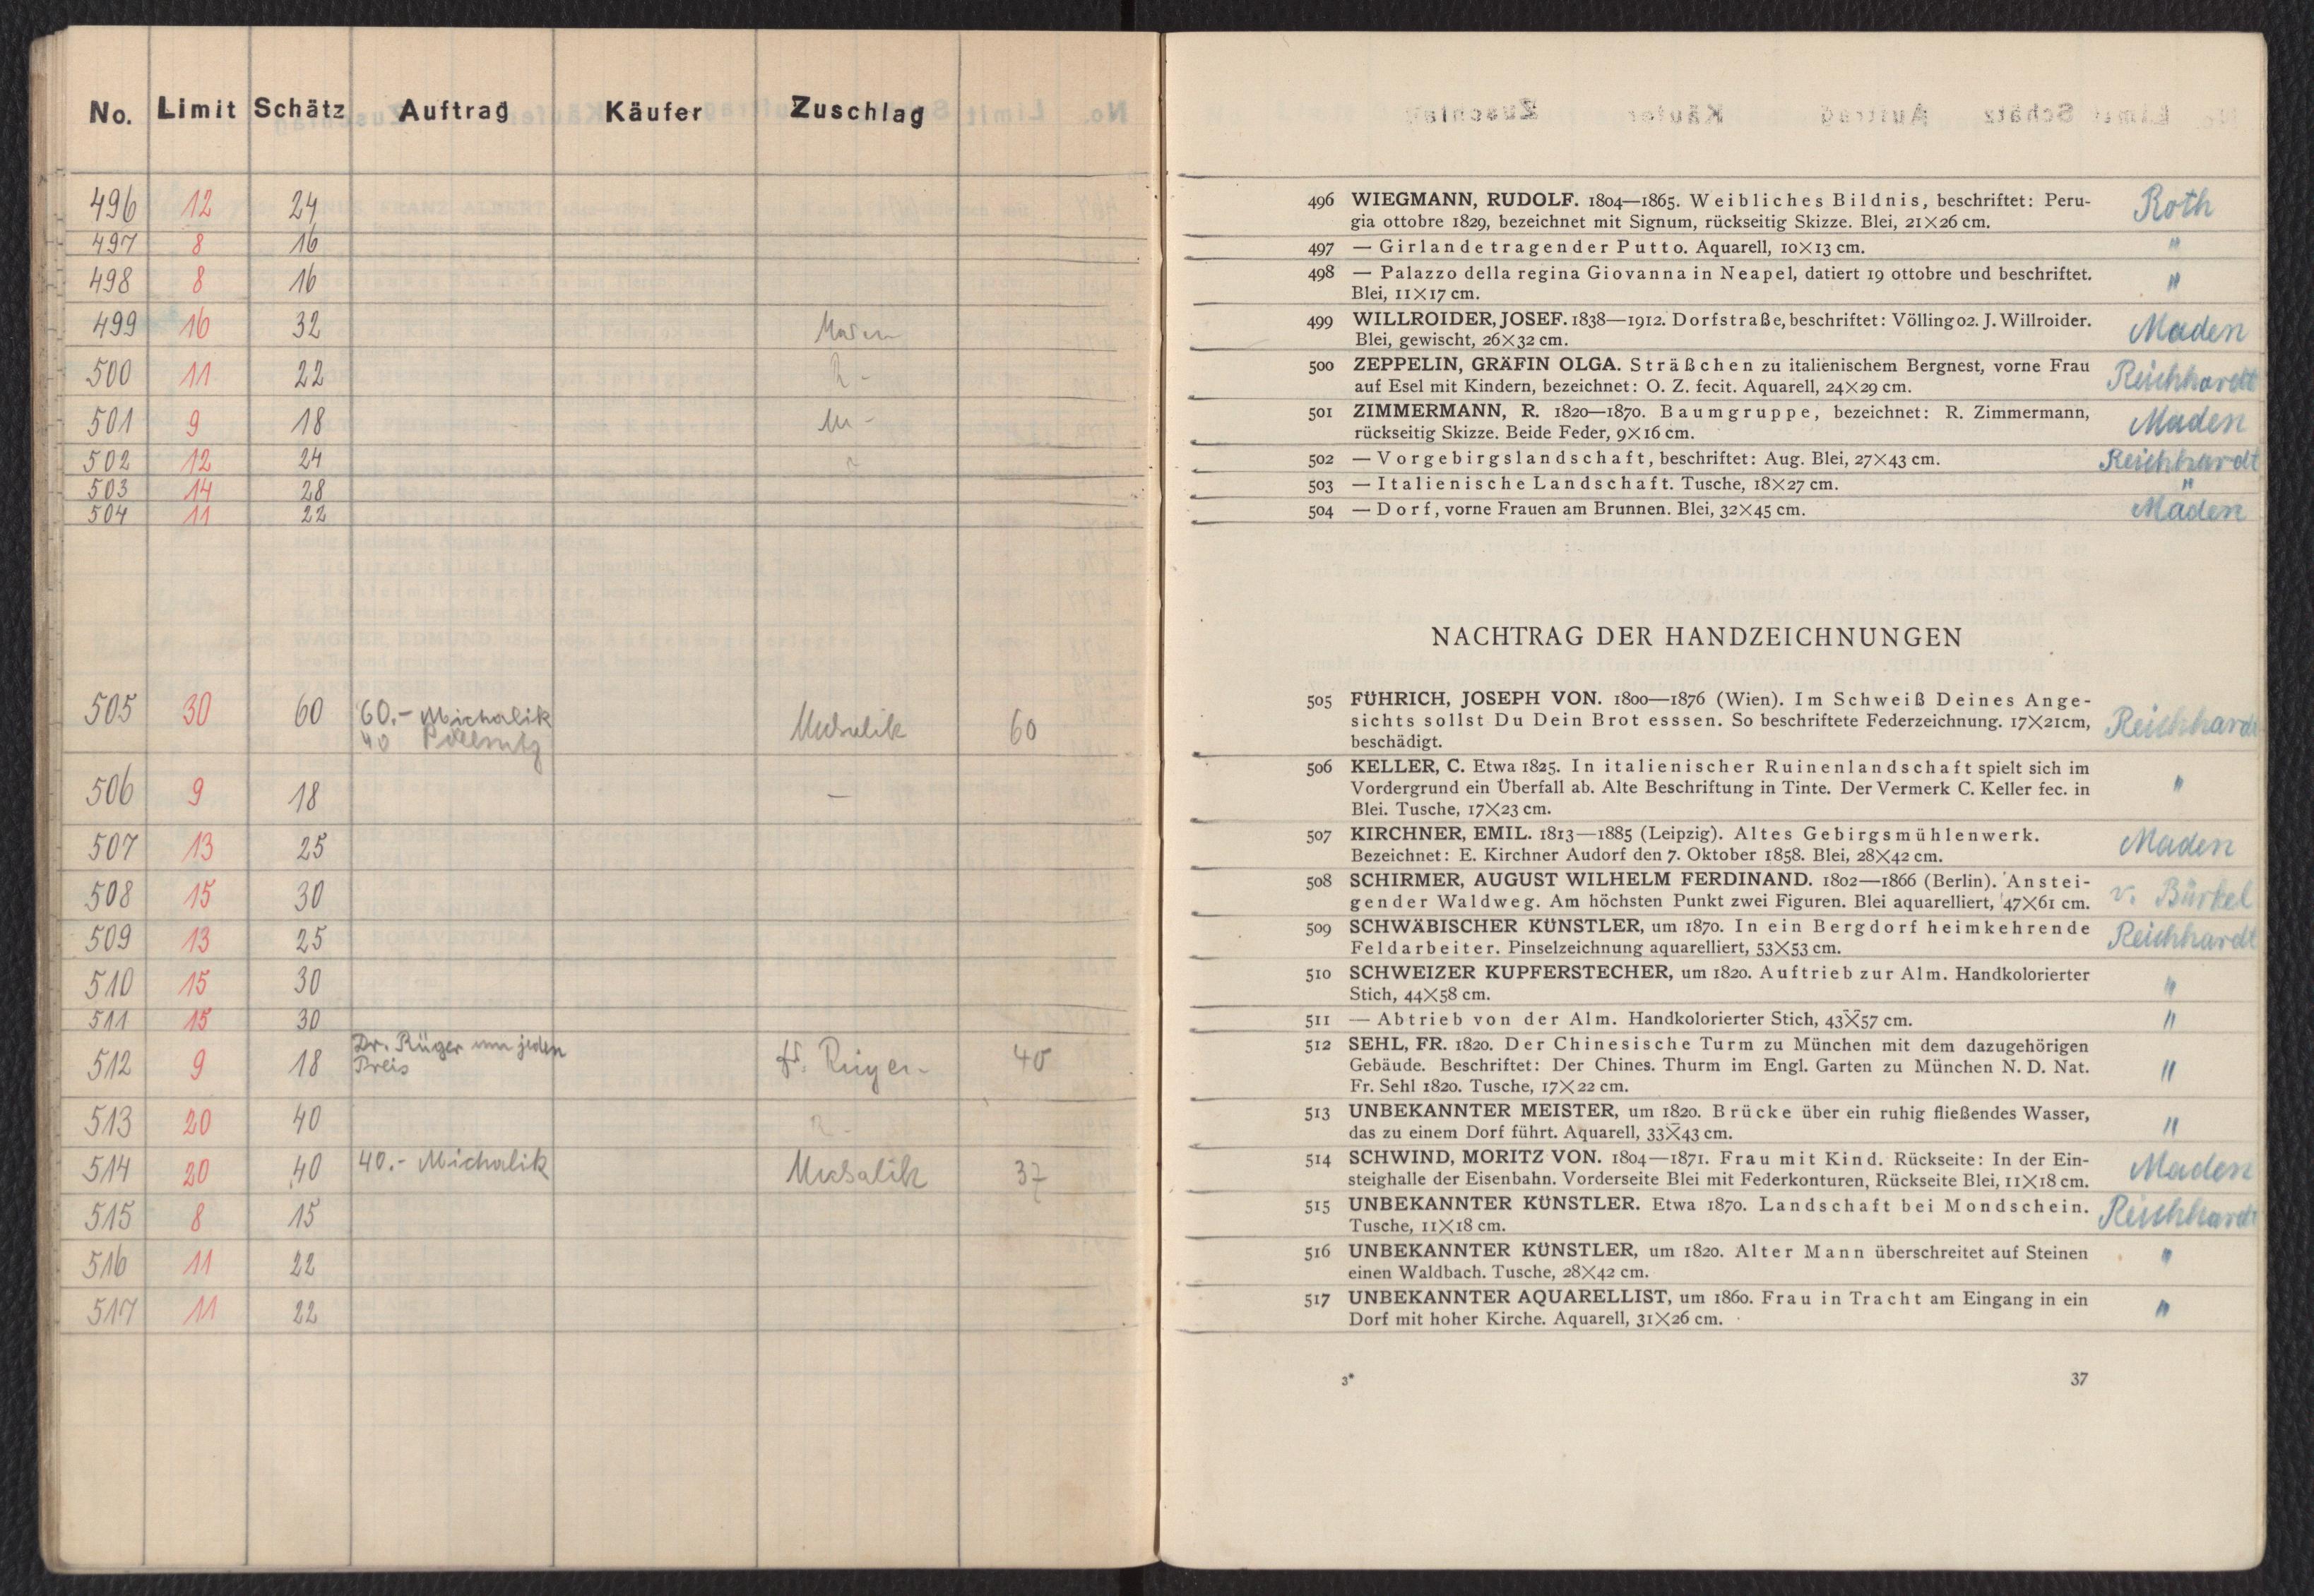 No. Limit Schätz Auftrag Käufer Zuschlag
496 12 24
497 8 16
498 8 16
499 16 32
500 11 22 R -
501 9 18 M -
502 12 24
503 14 28
504 11 22
505 30 60 60.- Michalik Michalik 60
40
506 9 18 —
507 13 25
508 15 30
509 13 25
510 15 30
511 15 30
512 9 18 Dr. Rüger um jeden Preis Dr. Rüger - 40
513 20 40 R -
514 20 40 40.- Michalik Michalik 37
515 8 15
516 11 22
517 11 22
496 WIEGMANN, RUDOLF. 1804—1865. Weibliches Bildnis, beschriftet: Peru-
gia ottobre 1829, bezeichnet mit Signum, rückseitig Skizze. Blei, 21×26 cm. Roth
497 — Girlande tragender Putto. Aquarell, 10×13 cm. "
498 — Palazzo della regina Giovanna in Neapel, datiert 19 ottobre und beschriftet.
Blei, 11×17 cm. "
499 WILLROIDER, JOSEF. 1838—1912. Dorfstraße, beschriftet: Völling 02. J. Willroider.
Blei, gewischt, 26×32 cm. Maden
500 ZEPPELIN, GRÄFIN OLGA. Sträßchen zu italienischem Bergnest, vorne Frau
auf Esel mit Kindern, bezeichnet: O. Z. fecit. Aquarell, 24×29 cm. Reichhardt
501 ZIMMERMANN, R. 1820—1870. Baumgruppe, bezeichnet: R. Zimmermann,
rückseitig Skizze. Beide Feder, 9×16 cm. Maden
502 — Vorgebirgslandschaft, beschriftet: Aug. Blei, 27×43 cm. Reichhardt
503 — Italienische Landschaft. Tusche, 18×27 cm. "
504 — Dorf, vorne Frauen am Brunnen. Blei, 32×45 cm. Maden
NACHTRAG DER HANDZEICHNUNGEN
505 FÜHRICH, JOSEPH VON. 1800—1876 (Wien). Im Schweiß Deines Ange-
sichts sollst Du Dein Brot esssen. So beschriftete Federzeichnung. 17×21cm, Reichhardt
beschädigt.
506 KELLER, C. Etwa 1825. In italienischer Ruinenlandschaft spielt sich im
Vordergrund ein Überfall ab. Alte Beschriftung in Tinte. Der Vermerk C. Keller fec. in "
Blei. Tusche, 17×23 cm.
507 KIRCHNER, EMIL. 1813—1885 (Leipzig). Altes Gebirgsmühlenwerk.
Bezeichnet: E. Kirchner Audorf den 7. Oktober 1858. Blei, 28×42 cm. Maden
508 SCHIRMER, AUGUST WILHELM FERDINAND. 1802—1866 (Berlin). Anstei-
gender Waldweg. Am höchsten Punkt zwei Figuren. Blei aquarelliert, 47×61 cm. v. Bürkel
509 SCHWÄBISCHER KÜNSTLER, um 1870. In ein Bergdorf heimkehrende
Feldarbeiter. Pinselzeichnung aquarelliert, 53×53 cm. Reichhardt
510 SCHWEIZER KUPFERSTECHER, um 1820. Auftrieb zur Alm. Handkolorierter
Stich, 44×58 cm. "
511 — Abtrieb von der Alm. Handkolorierter Stich, 43×57 cm. "
512 SEHL, FR. 1820. Der Chinesische Turm zu München mit dem dazugehörigen
Gebäude. Beschriftet: Der Chines. Thurm im Engl. Garten zu München N. D. Nat. "
Fr. Sehl 1820. Tusche, 17×22 cm.
513 UNBEKANNTER MEISTER, um 1820. Brücke über ein ruhig fließendes Wasser,
das zu einem Dorf führt. Aquarell, 33×43 cm. "
514 SCHWIND, MORITZ VON. 1804—1871. Frau mit Kind. Rückseite: In der Ein-
steighalle der Eisenbahn. Vorderseite Blei mit Federkonturen, Rückseite Blei, 11×18 cm. Maden
515 UNBEKANNTER KÜNSTLER. Etwa 1870. Landschaft bei Mondschein.
Tusche, 11×18 cm. Reichhardt
516 UNBEKANNTER KÜNSTLER, um 1820. Alter Mann überschreitet auf Steinen
einen Waldbach. Tusche, 28×42 cm. "
517 UNBEKANNTER AQUARELLIST, um 1860. Frau in Tracht am Eingang in ein
Dorf mit hoher Kirche. Aquarell, 31×26 cm. "
3* 37